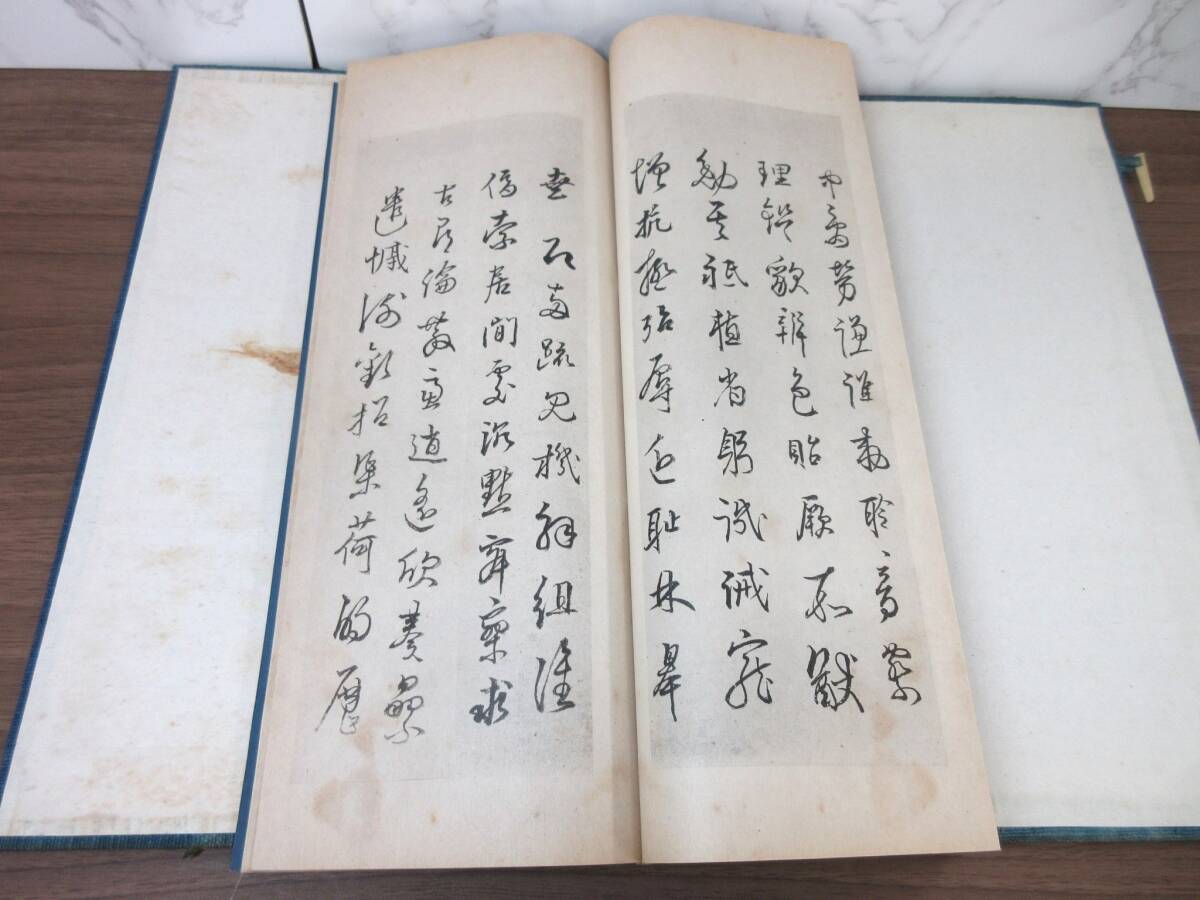 中庸勞謙謹敕聆音察
理鑑貌辨色貽厥嘉猷
勉其祗植省躬譏誡寵
增抗極殆辱近耻林皋
幸即兩疏見機解組誰
逼索居閒處沉默寂寥求
古尋論散慮逍遙欣奏累
遣慼謝歡招渠荷的歷